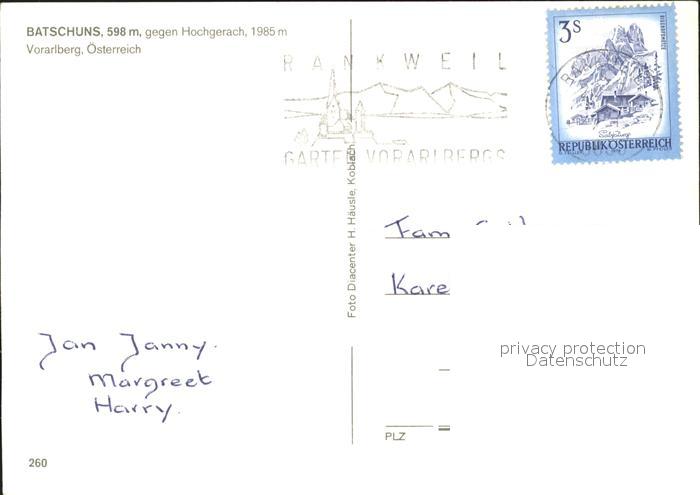 BATSCHUNS, 598 m, gegen Hochgerach, 1985 m
Vorarlberg, Österreich
RANKWEIL
GARTEN VORARLBERGS
3 S
REPUBLIK ÖSTERREICH
Foto Diacenter H. Häusle, Koblach
Fam
Kare
Jan Janny.
Margreet
Harry.
privacy protection
Datenschutz
PLZ
260